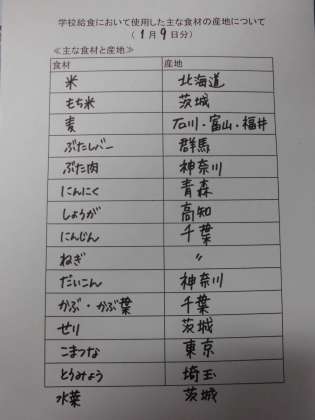 学校給食において使用した主な食材の産地について
(1月9日分)
≪主な食材と産地≫
食材 産地
米 北海道
もち米 茨城
麦 石川・富山・福井
ぶたレバー 群馬
ぶた肉 神奈川
にんにく 青森
しょうが 高知
にんじん 千葉
ねぎ 〃
だいこん 神奈川
かぶ・かぶ葉 千葉
せり 茨城
こまつな 東京
とうみょう 埼玉
水菜 茨城